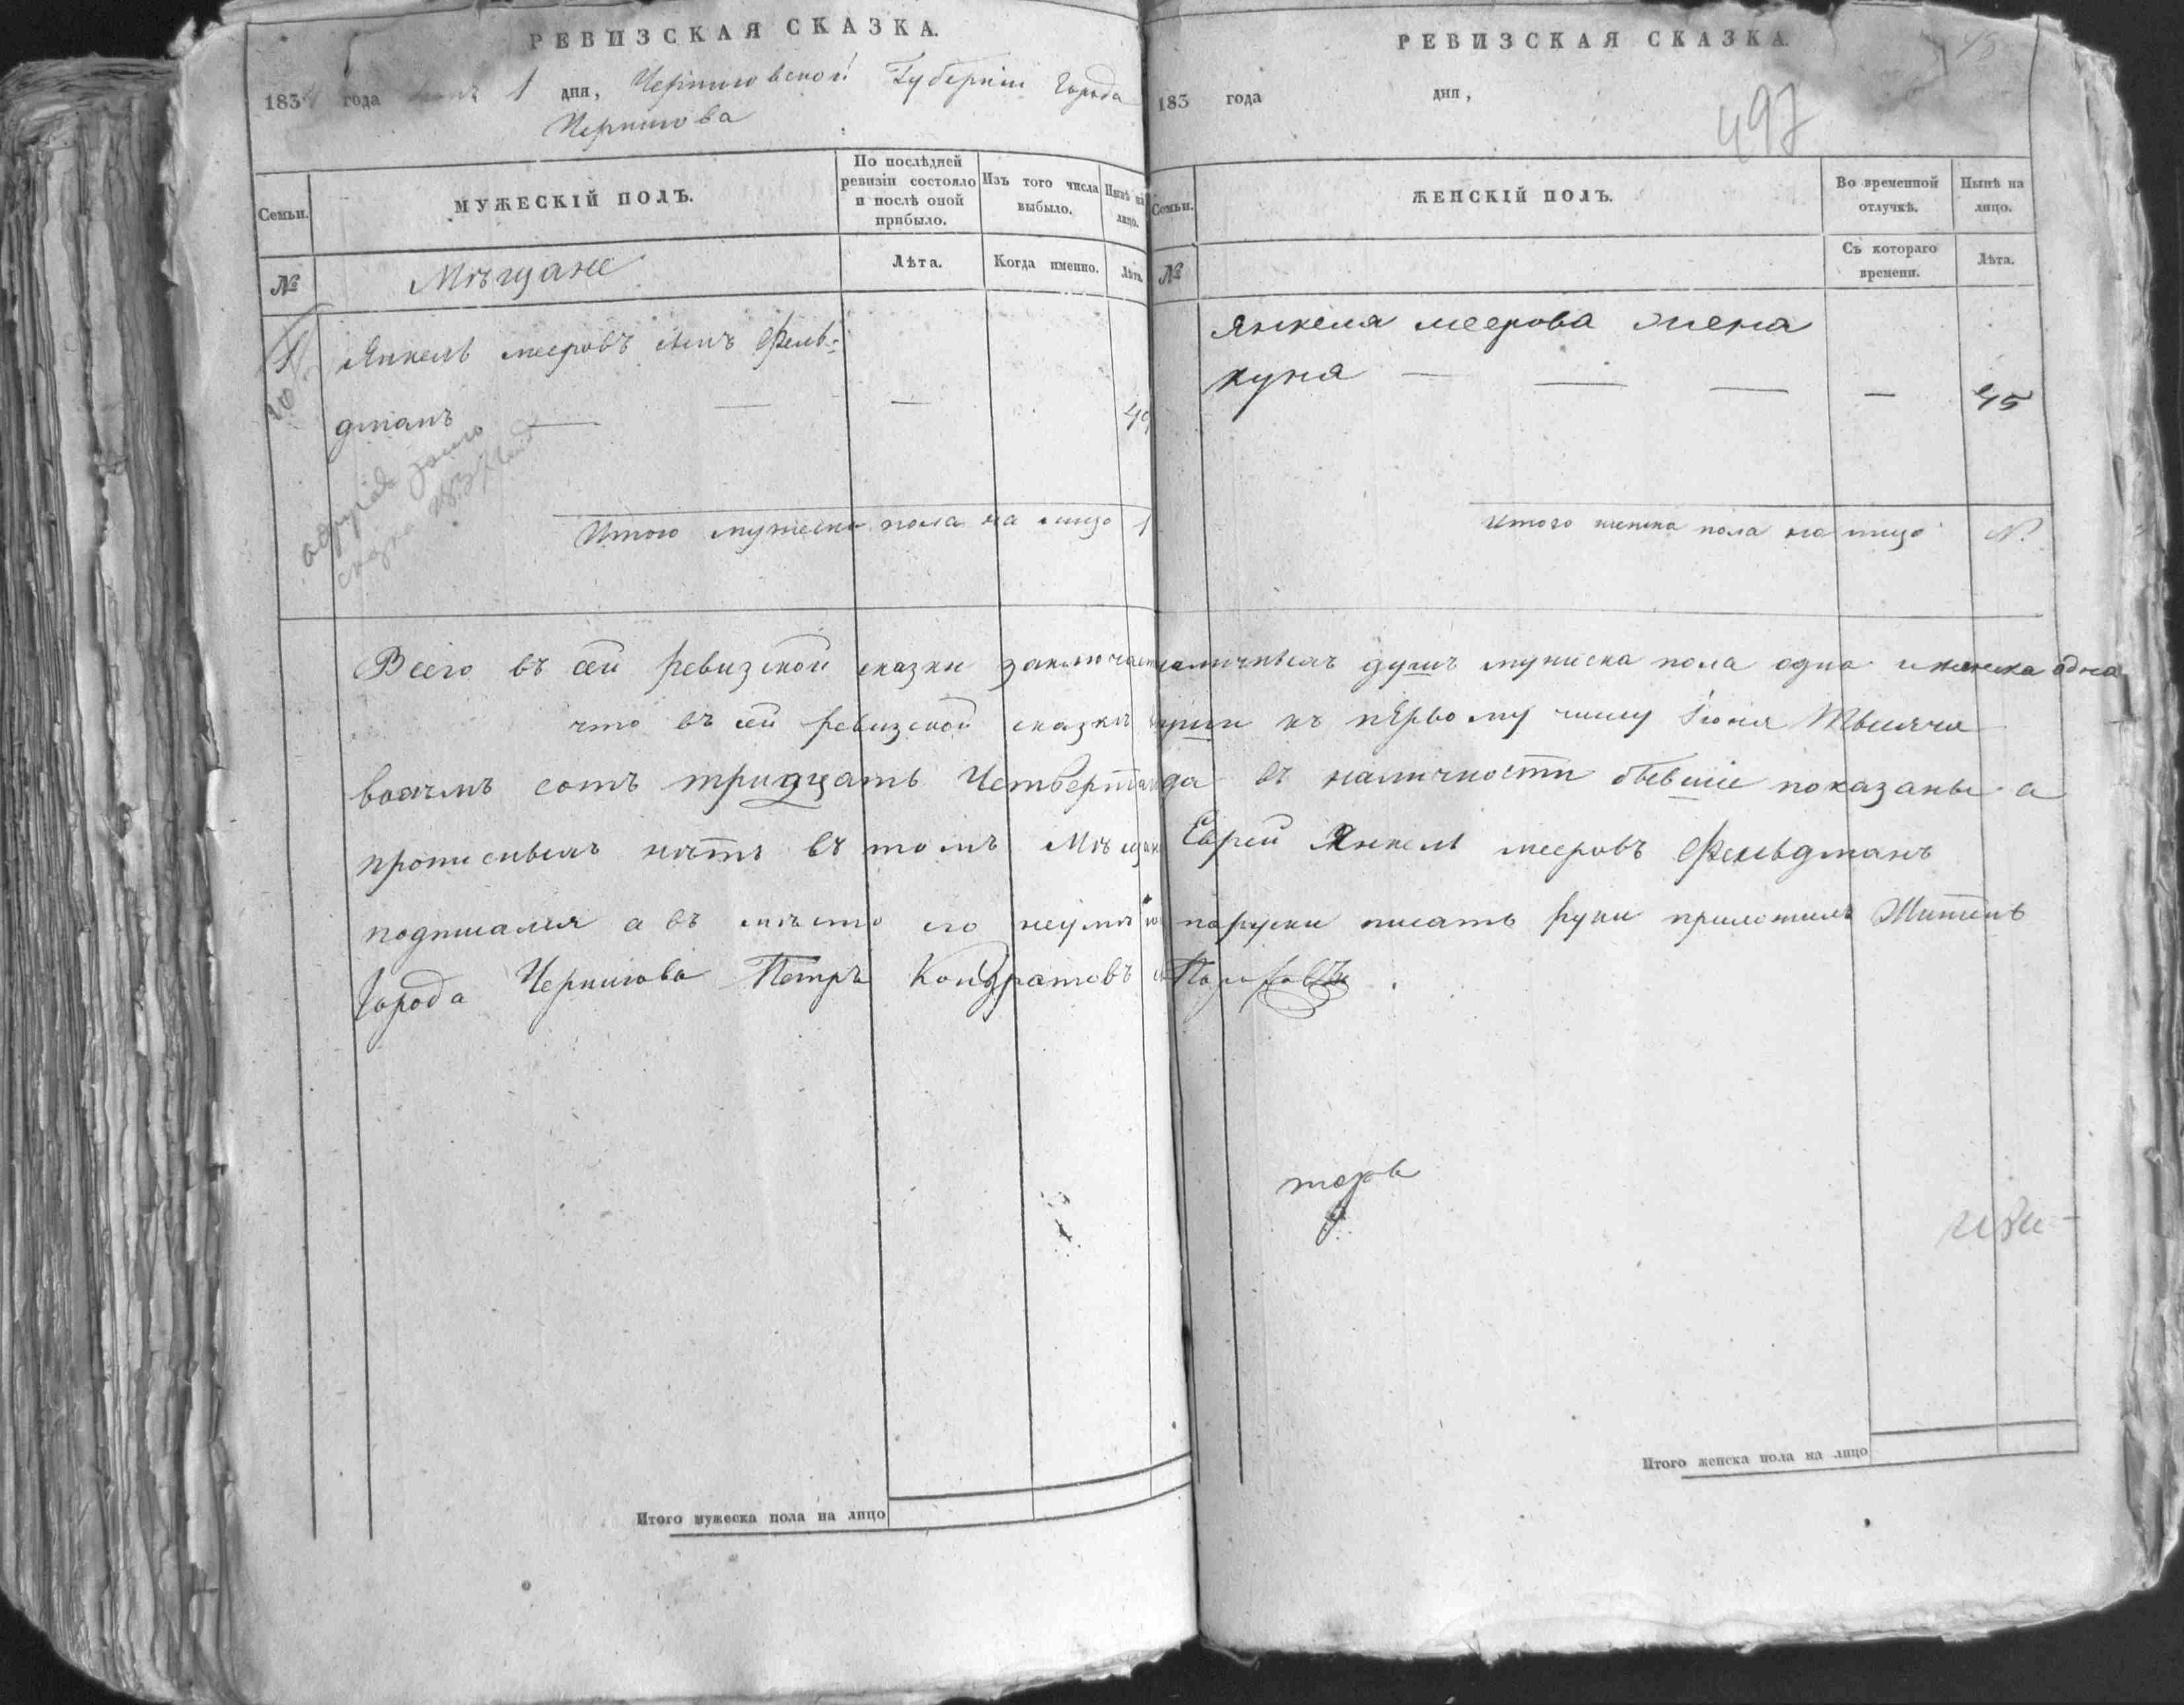 РЕВИЗСКАЯ СКАЗКА.
1834 года 1 дня, Черниговской Губернии Города
Чернигова
Семьи.
МУЖЕСКІЙ ПОЛЪ.
По послѣдней ревизіи состояло и послѣ оной прибыло.
Изъ того числа выбыло.
Нынѣ на лицо.
№
Мѣщане
Лѣта.
Когда именно.
Лѣта.
Янкель мееровъ сынъ Фель-
дманъ — — — 49
Итого мужеска пола на лицо 1
РЕВИЗСКАЯ СКАЗКА.
183 года дня,
497
Семьи.
ЖЕНСКІЙ ПОЛЪ.
Во временной отлучкѣ.
Нынѣ на лицо.
№
Съ котораго времени.
Лѣта.
Янкеля меерова жена
куня — — — — 45
Итого женска пола на лицо
Всего въ сей ревизской сказки наличныхъ душъ мужеска пола одна и женска одна
что въ сей ревизской сказкѣ къ первому числу Іюня Тысяча
восѣмъ сотъ тридцать Четвертаго да въ наличности бывшие показаны а
прописныхъ нѣтъ въ томъ Еврей Янкель мееровъ Фельдманъ
подписался а въ мѣсто его писать руки приложилъ Житель
Города Чернигова Петръ Кондратовъ
Итого мужеска пола на лицо
Итого женска пола на лицо